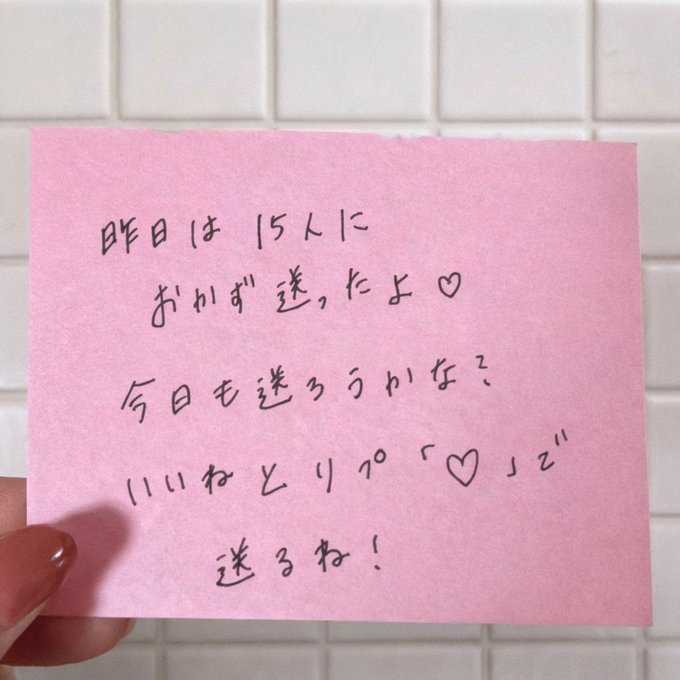 昨日は15人に
おかず送ったよ♡
今日も送ろうかな?
いいねとリプ「♡」で
送るね!